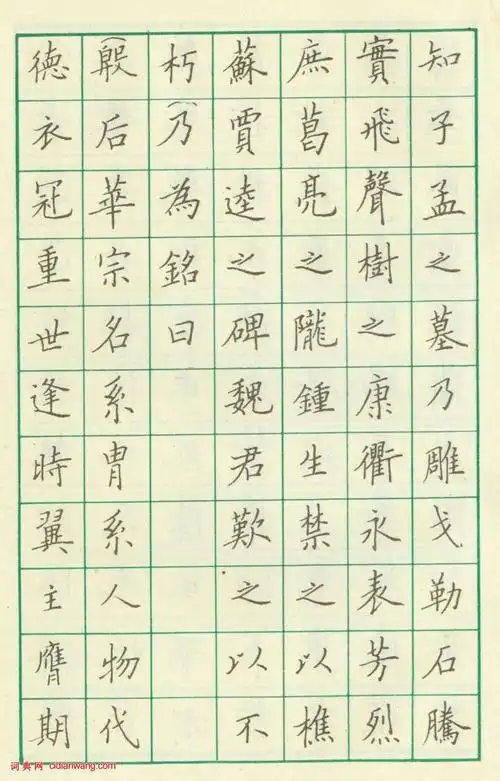 知子孟之墓乃雕戈勒石騰
實飛聲樹之康衢永表芳烈
庶葛亮之隴鍾生禁之以樵
蘇賈逵之碑魏君歎之以不
朽(乃為銘曰
(殷后華宗名系胄系人物代
德衣冠重世逢時翼主膺期
词典网www.cidianwang.com